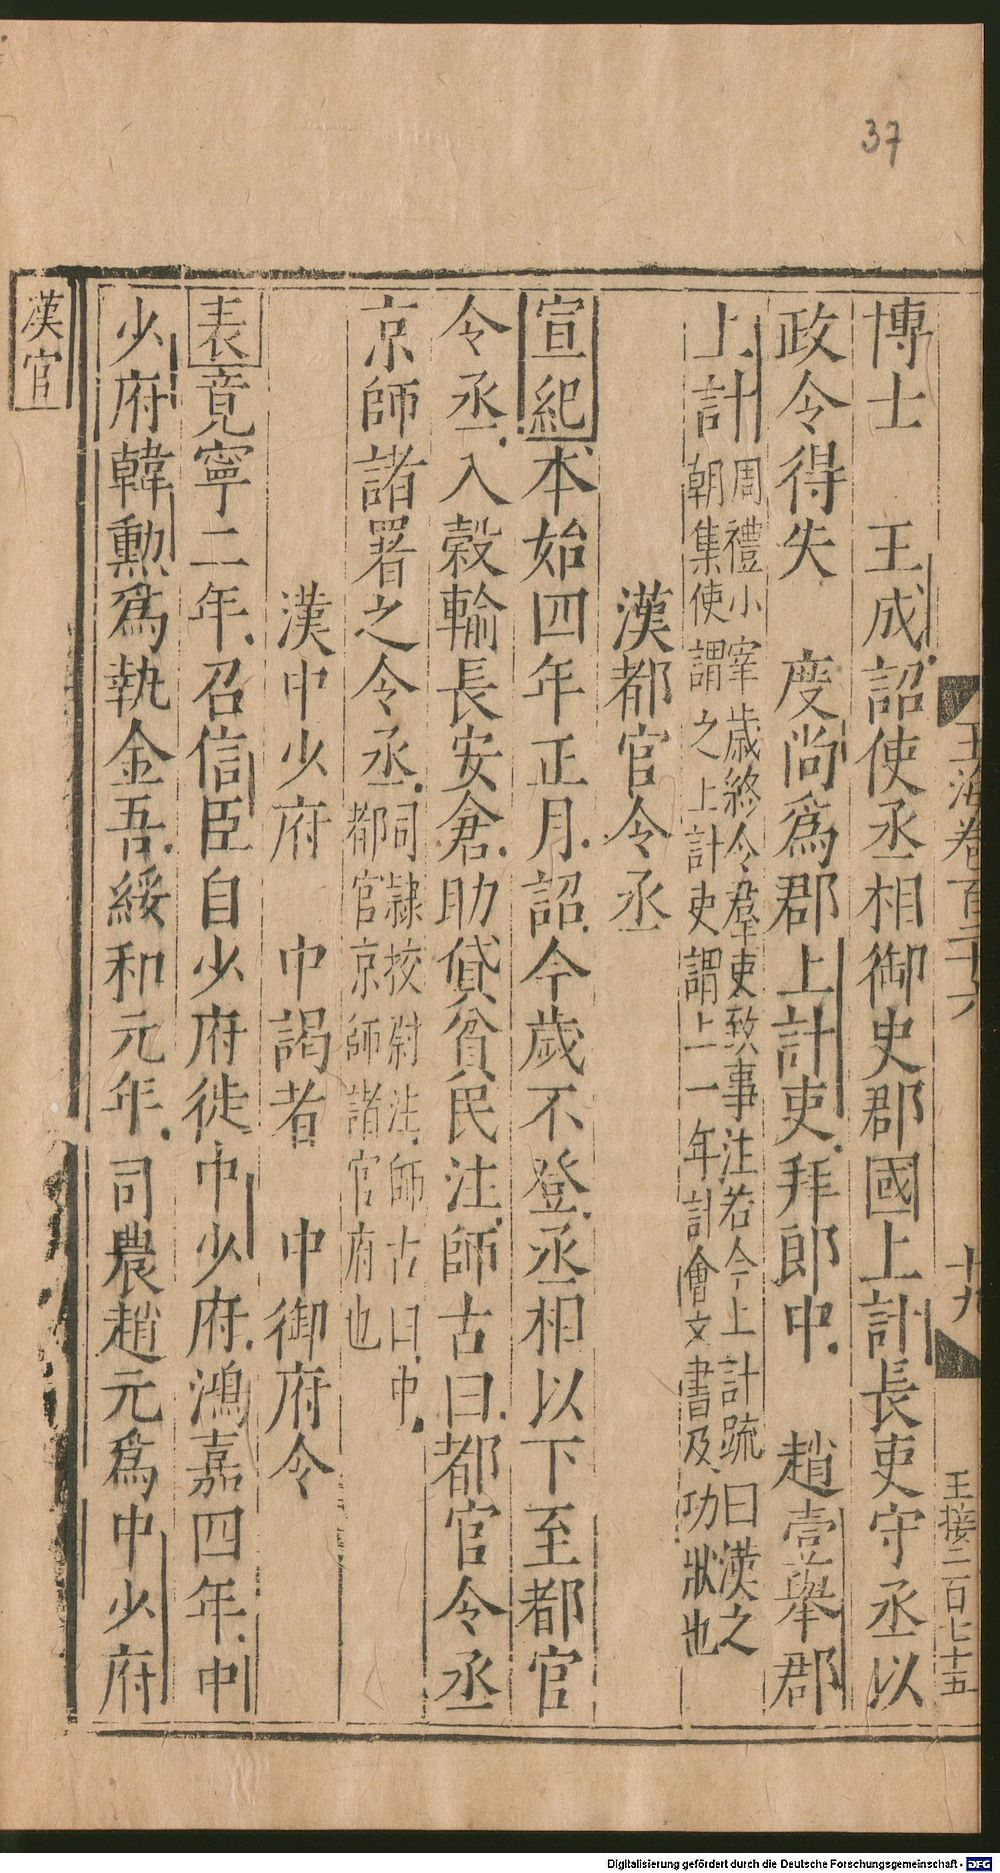 37
玉海卷百二十六
十九
王接二百七十五
博士　王成詔使丞相御史郡國上計長吏守丞以
政令得失　度尚爲郡上計吏拜郎中　趙壹舉郡
上計周禮小宰歲終令羣吏致事注若今上計疏曰漢之
朝集使謂之上計吏謂上一年計會文書及功狀也
漢都官令丞
宣紀本始四年正月詔今歲不登丞相以下至都官
令丞入穀輸長安倉助貸貧民注師古曰都官令丞
京師諸署之令丞司隷校尉注師古曰中
都官京師諸官府也
漢中少府　中謁者　中御府令
表竟寧二年召信臣自少府徙中少府鴻嘉四年中
少府韓勳爲執金吾綏和元年司農趙元爲中少府
漢官
Digitalisierung gefördert durch die Deutsche Forschungsgemeinschaft - DFG